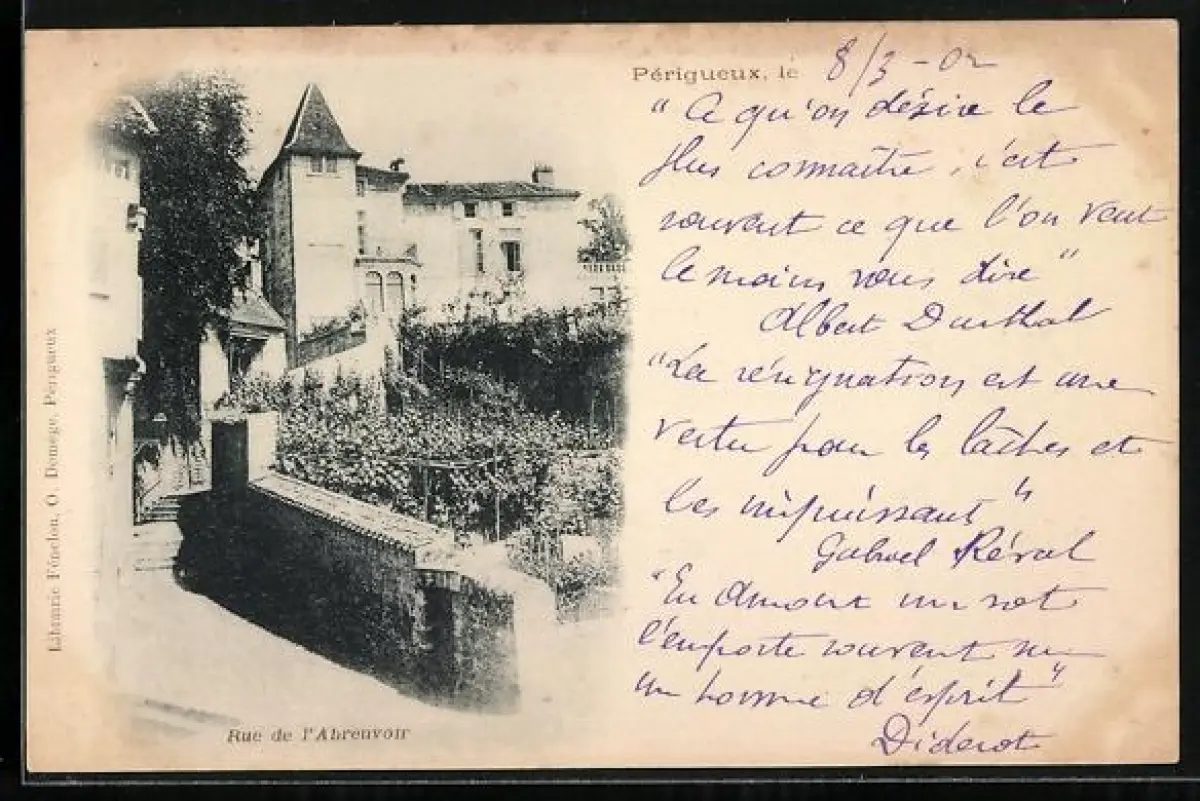 Périgueux, le 8/3-02
"Ce qu'on désire le
plus connaître, c'est
souvent ce que l'on veut
le moins vous dire"
Albert
"La résignation est une
vertu pour les lâches et
les impuissants"
Gabriel Réval
"En Amour un sot
l'emporte souvent sur
un homme d'esprit"
Diderot
Rue de l'Abreuvoir
Librairie Fénelon, O. Domège, Périgueux